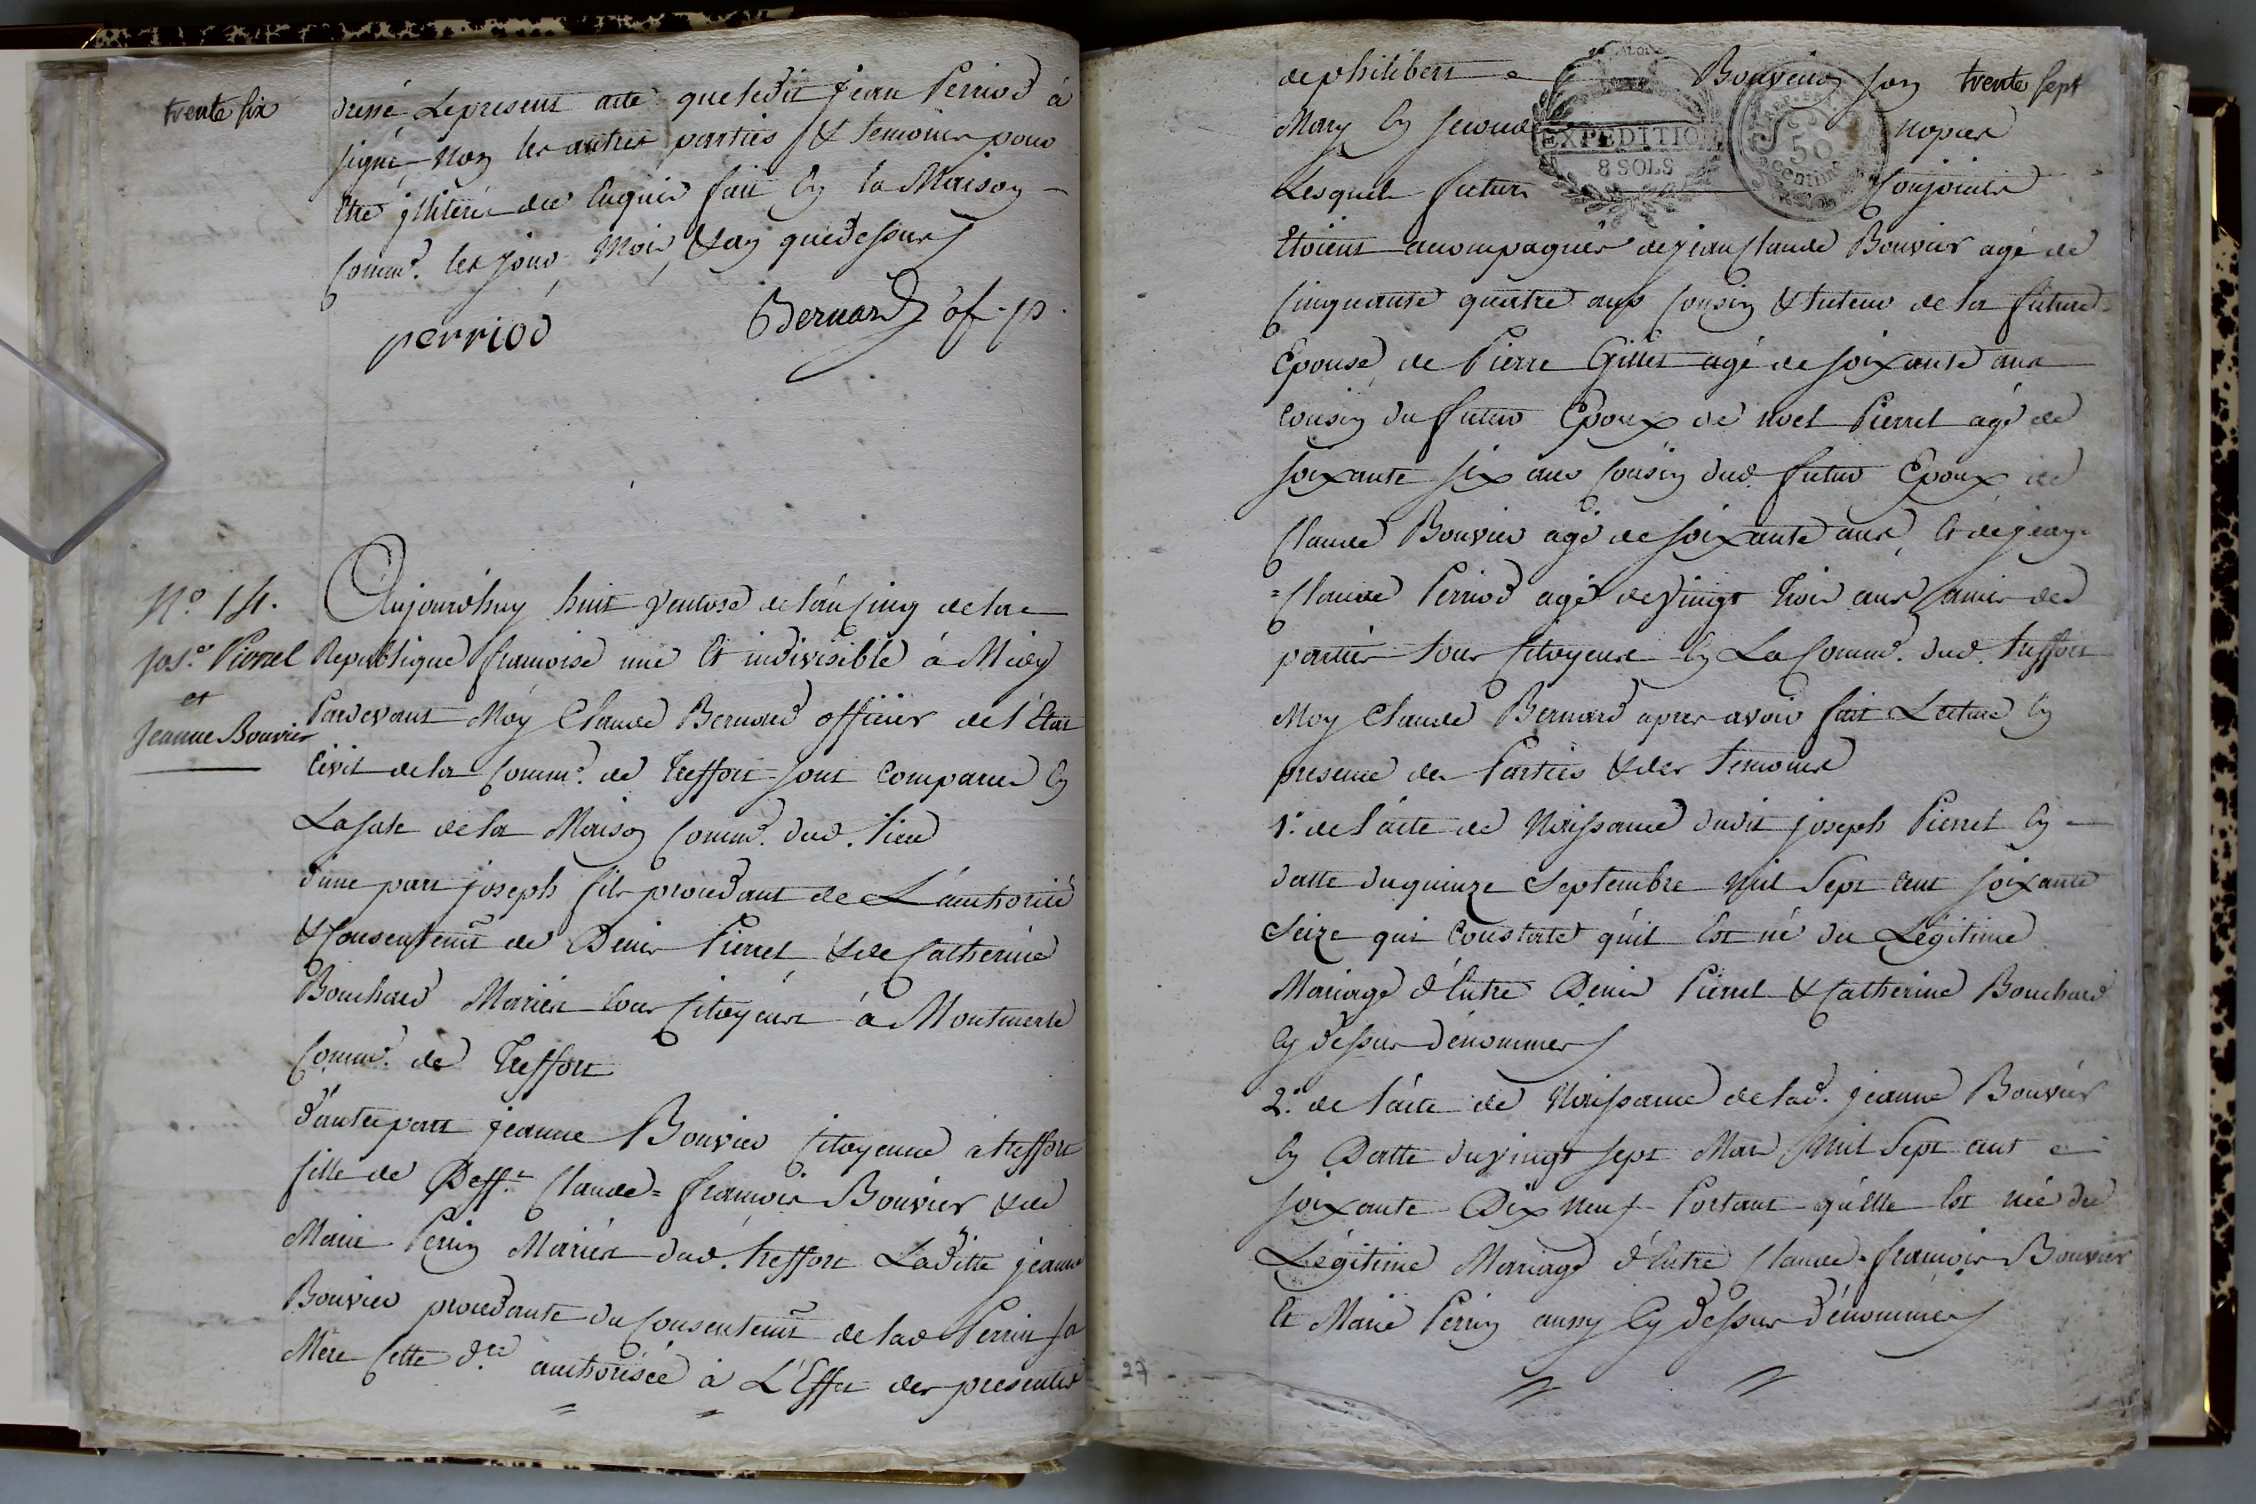 trente six
dressé Lepresent acte queledit jean Perriod à
signé, Non les autres parties & temoins pour
Etre jlliterés de Enquis fait Ey la Maison
Comm.e les jour, Mois, & an quedessus
perriod
Bernard of. p.
N.o 14.
Jos.e Pierrel
et
Jeanne Bouvier
Aujourdhuy huit Ventose delán Cinq dela
Republique françoise une Et indivisible à Midy
Pardevant Moy Claude Bernard officier de l'Etat
Civil dela Comm.e de Treffort sont Comparus Ey
Lasale dela Maison Comm.e dud. Lieu
d'une part joseph fils procedant de L'authorité
& Consentemt de Denis Pierrel & de Catherine
Bouchard Mariés tous Citoyens à Montmerle
Comm.e de Treffort
d'autrepart jeanne Bouvier Citoyenne à treffort
fille de Deff.t Claude=francois Bouvier & de
Marie Perrin Mariés dud. treffort Laditte jeanne
Bouvier procedante du Consentemt de lad Perrin sa
Mere Cette d.re authorisée à L'Effet des presentes
trente sept
dephilibert Bouvier son
Mary Ey second nopces
Lesquels futurs Conjoints
Etoient accompagnés dejean Claude Bouvier agé de
Cinquante quatre ans Cousin & tuteur de la future
Epouse, de Pierre Gillet agé de soixante ans
Cousin du futur Epoux de Noel Pierrel agé de
soixante six ans Cousin dud. futur Epoux de
Claude Bouvier agé de soixante ans, Et dejean
=Claude Perriod agé devingt trois ans amis des
parties tous Citoyens Ey La Comm.e dud. treffort
Moy Claude Bernard apres avoir fait Lecture Ey
presence des Parties & des temoins
1.o de l'acte de Naissance dudit joseph Pierrel Ey
datte duquinze Septembre Mil Sept Cent soixante
Seize qui Constate qu'il Est né du Légitime
Mariage d'Entre Denis Pierrel & Catherine Bouchard
Cy dessus dénommés
2.o de l'acte de Naissance de lad. jeanne Bouvier
Ey Datte duvingt sept Mars Mil Sept cent
soixante Dix Neuf Portant qu'elle Est née du
Légitime Mariage d'Entre Claude-francois Bouvier
Et Marie Perrin aussy Cy dessus dénommés
EXPEDITION
8 SOLS
REP. FRA.
50
Centimes
27